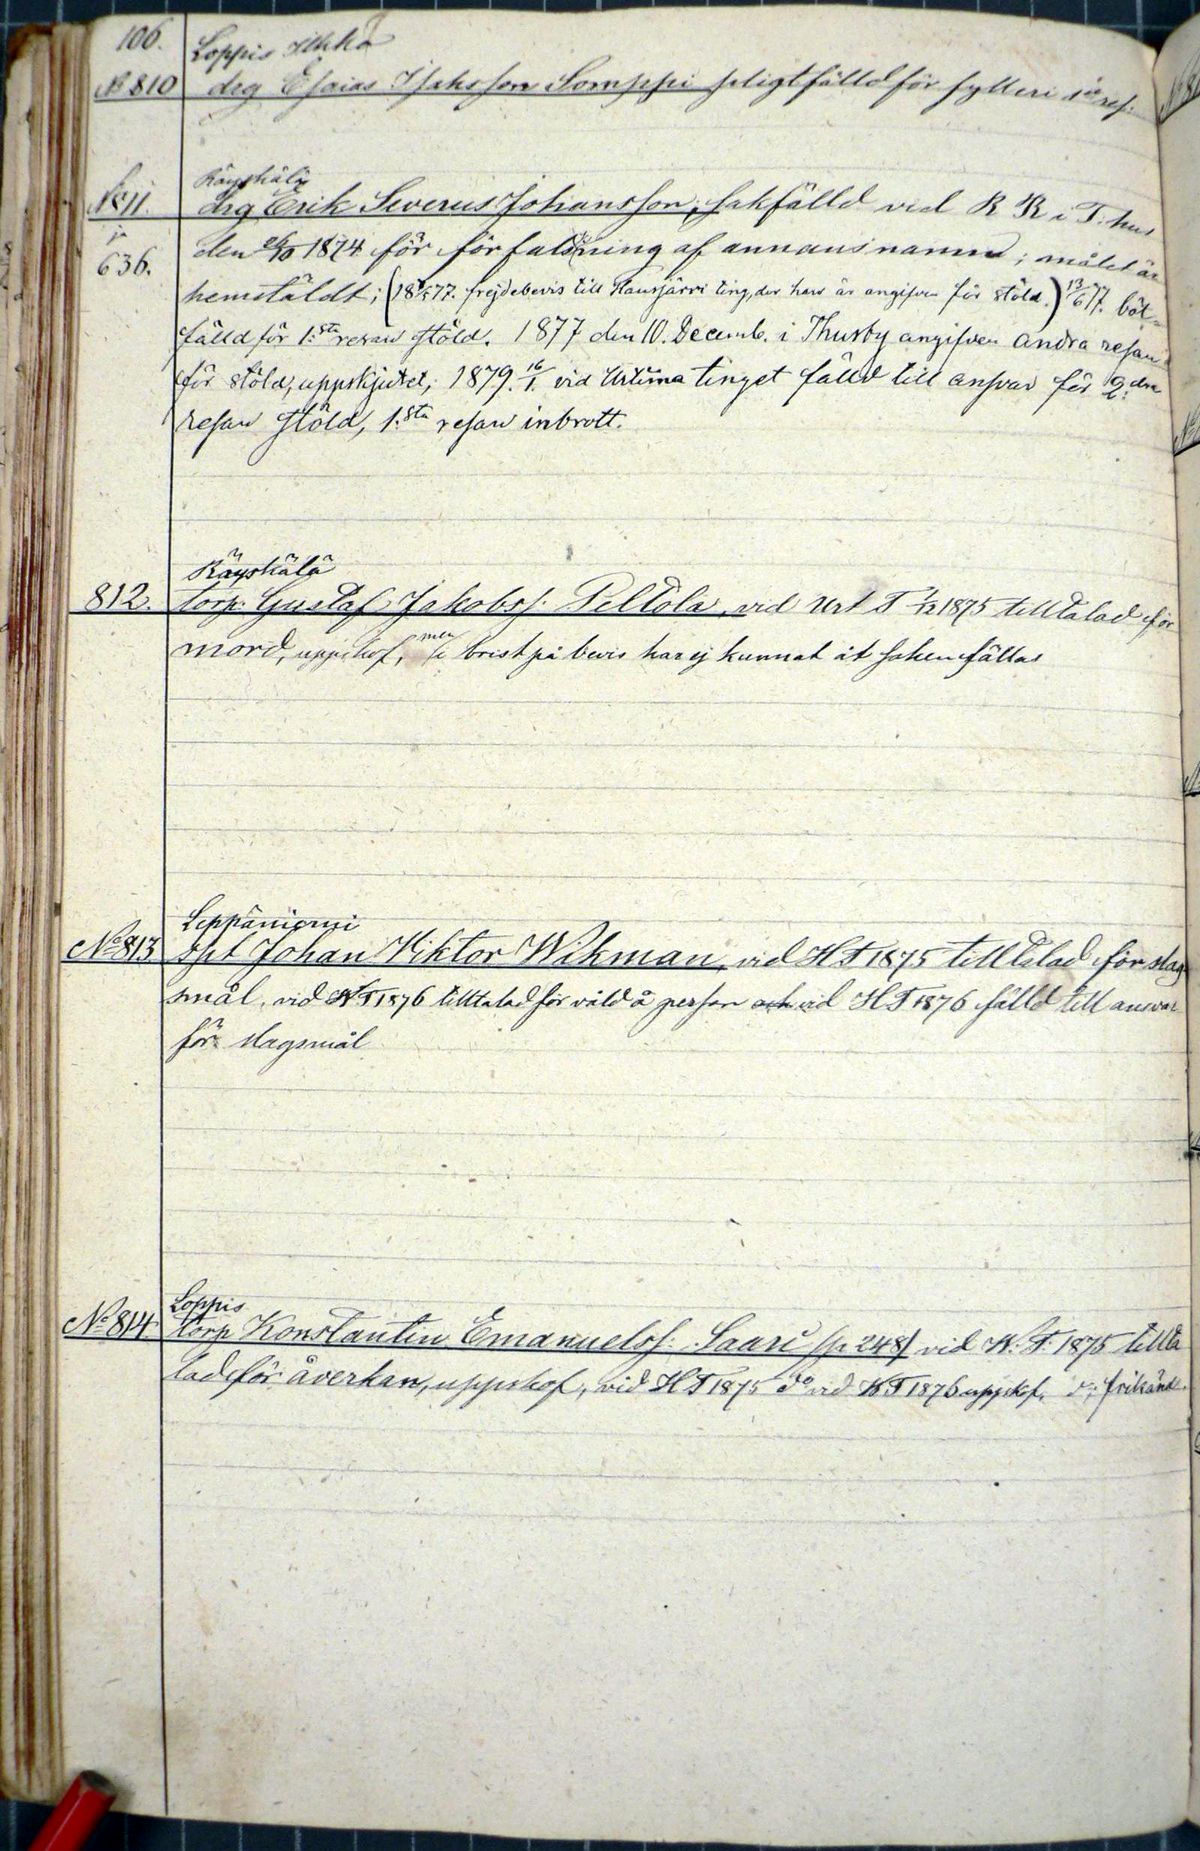 106.
Loppis Ilkka
№ 810 drg Esaias Isaksson Somppi pligtfälld för fylleri 1a res.
Räyskälä
№ 11. drg Erik Severus Johansson, sakfälld vid R R i T.hus
636. den 24/10 1874 för förfalskning af annans namn; målet är
hemstäldt; (18 7/5 77. frejdebevis till Hausjärvi ting, der han är angifven för stöld.) 13/6 77. böt-
fälld för 1:sta resan stöld. 1877 den 10. Decemb. i Thusby angifven andra resan
för stöld, uppskjutet; 1879. 16/1. vid Urtima tinget fälld till ansvar för 2:dra
resan stöld, 1:sta resan inbrott.
Räyskälä
812. torp. Gustaf Jakobss: Peltola, vid Urt T 7/12 1875 tilltalad för
mord, uppskof, men i brist på bevis har ej kunnat åt saken fällas
Leppäniemi
№ 813 spt Johan Viktor Wikman, vid H T 1875 tilltalad för slags
mål, vid W T 1876 tilltalad för våld å person och vid H T 1876 fälld till ansvar
för slagsmål
Loppis
№ 814 torp Konstantin Emanuelss: Saari (p 248) vid W. T. 1875 tillta
lad för åverkan, uppskof, vid H T 1875 do vid W T 1876 uppskof, frikänd.